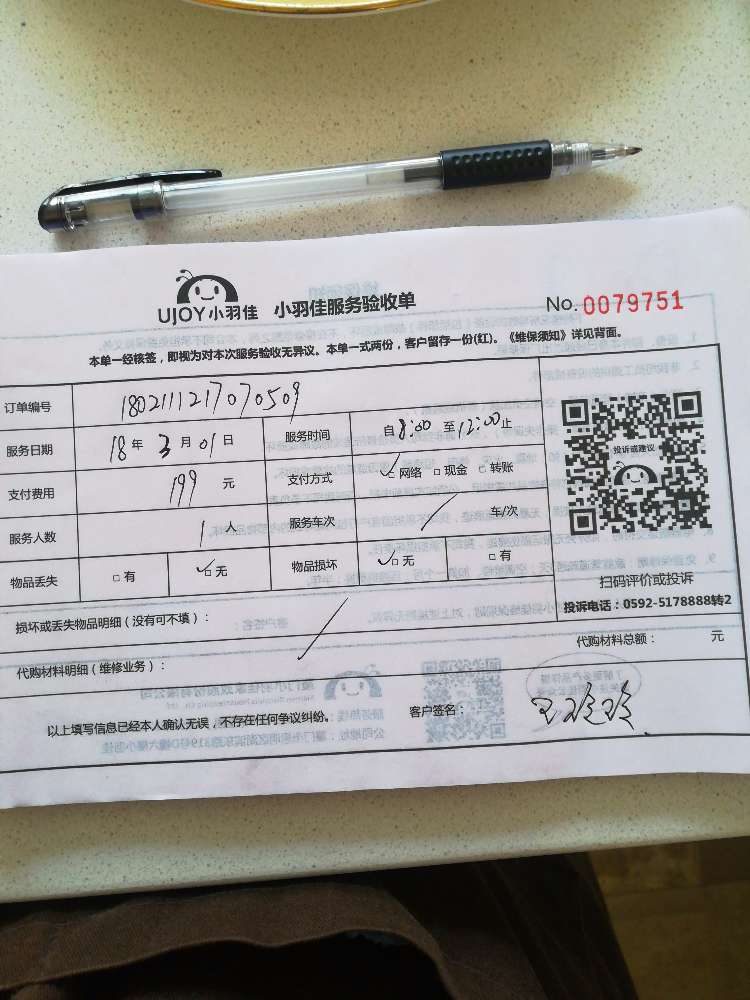 UJOY小羽佳 小羽佳服务验收单 No.0079751
本单一经核签，即视为对本次服务验收无异议。本单一式两份，客户留存一份(红)。《维保须知》详见背面。
订单编号 1802111217070509
服务日期 18年3月01日 服务时间 自8:00至12:00止
投诉或建议
支付费用 199 元 支付方式 ☑网络 □现金 □转账
服务人数 1 人 服务车次 / 车/次
物品丢失 □有 ☑无 物品损坏 ☑无 □有
扫码评价或投诉
投诉电话：0592-5178888转2
损坏或丢失物品明细（没有可不填）： /
代购材料明细（维修业务）： 代购材料总额： 元
以上填写信息已经本人确认无误，不存在任何争议纠纷。 客户签名： 王玲玲